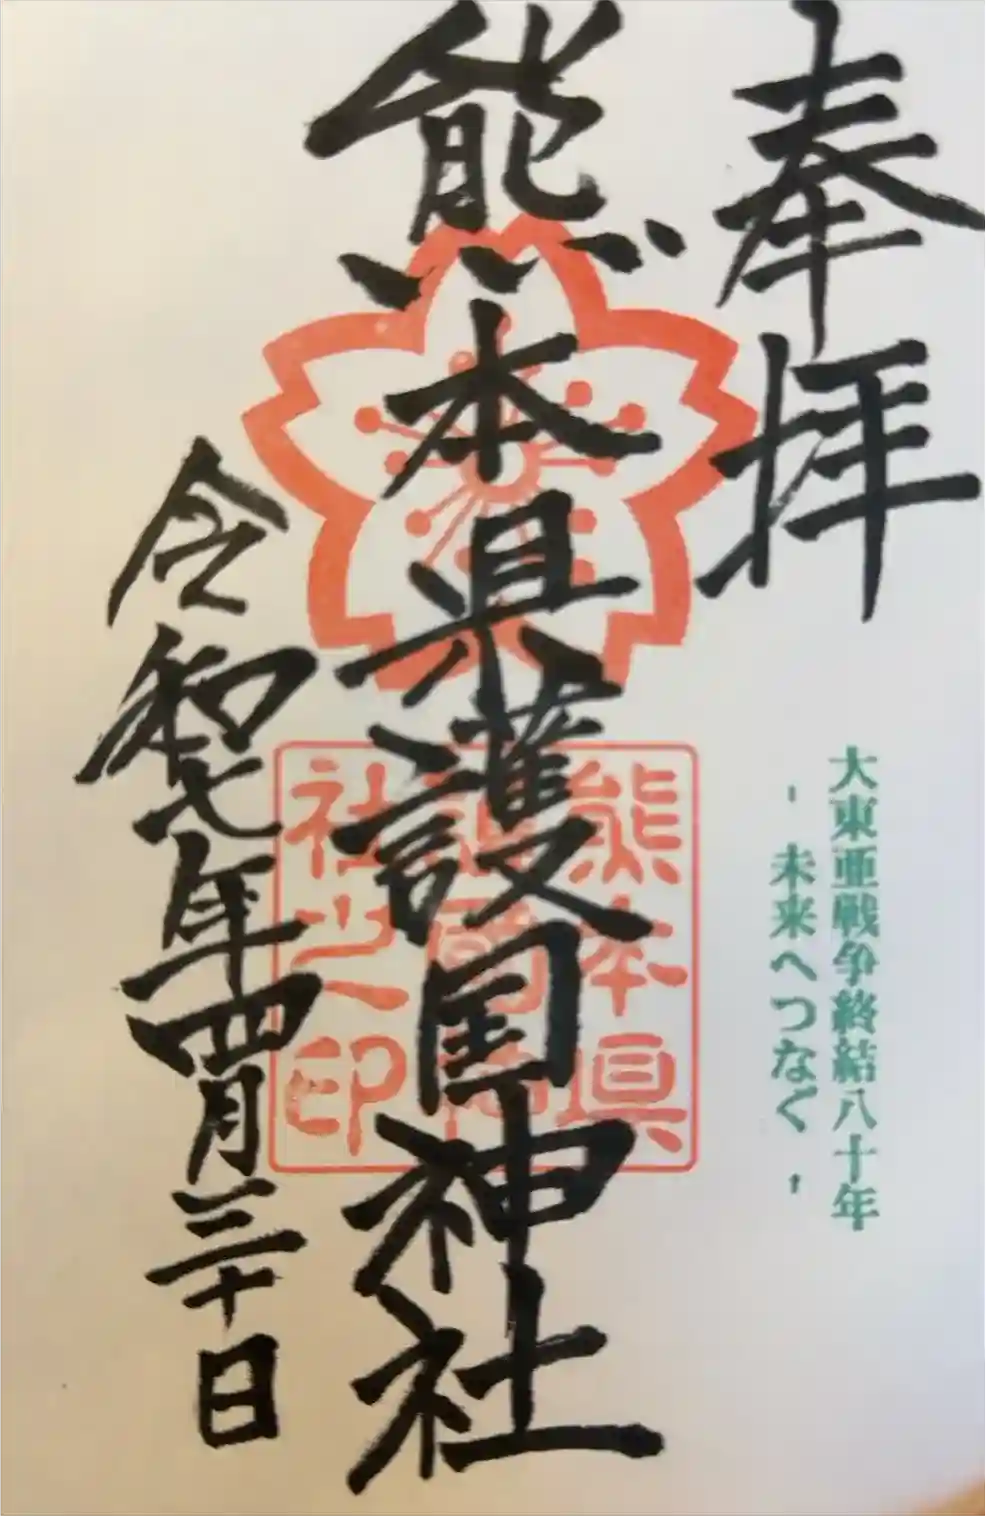 奉拝
大東亜戦争終結八十年
-未来へつなぐ-
熊本県護国神社
熊本縣護國神社之印
令和七年四月三十日